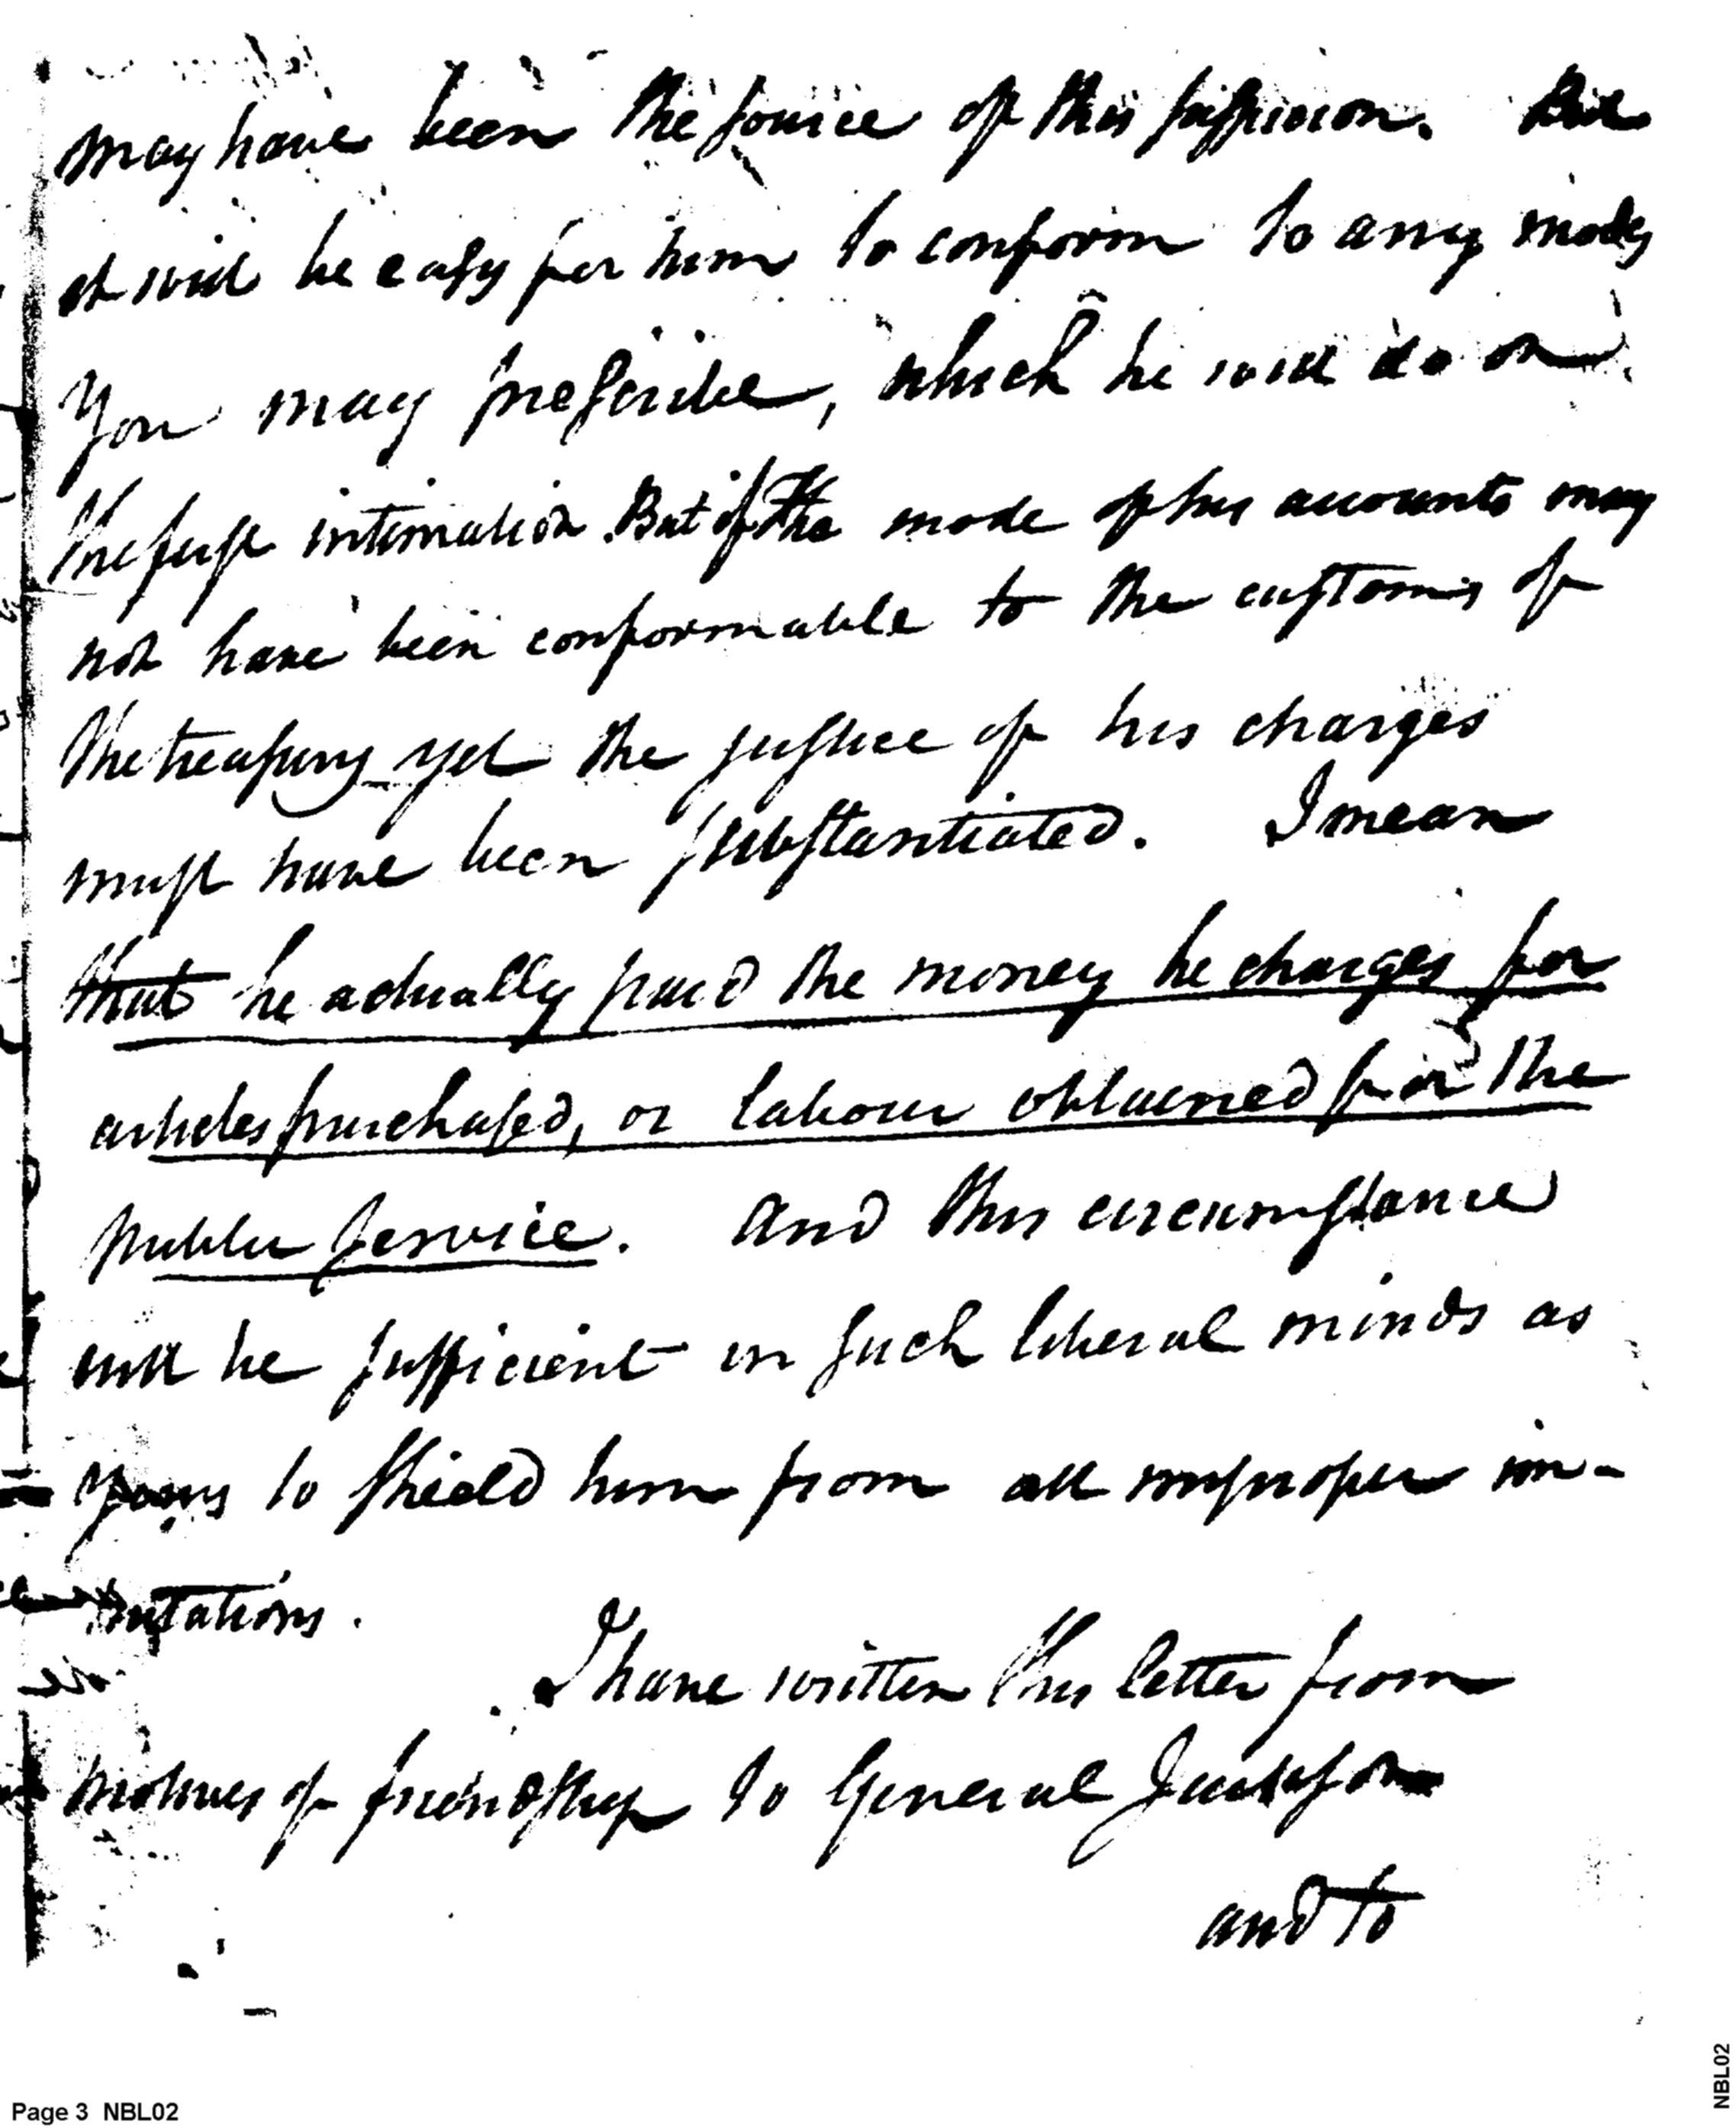 may have been the source of this suspicion. But
it will be easy for him to conform to any modes
you may prescribe, which he will do on
the first intimation. But if the mode of his accounts may
not have been conformable to the customs of
the treasury yet the justice of his charges
must have been substantiated. I mean
that he actually paid the money he charges for
articles purchased, or labour obtained for the
public service. And this circumstance
will be sufficient in such liberal minds as
yours to shield him from all improper im-
putations.
I have written this letter from
motives of friendship to General Jackson
and to
Page 3 NBL02
NBL02